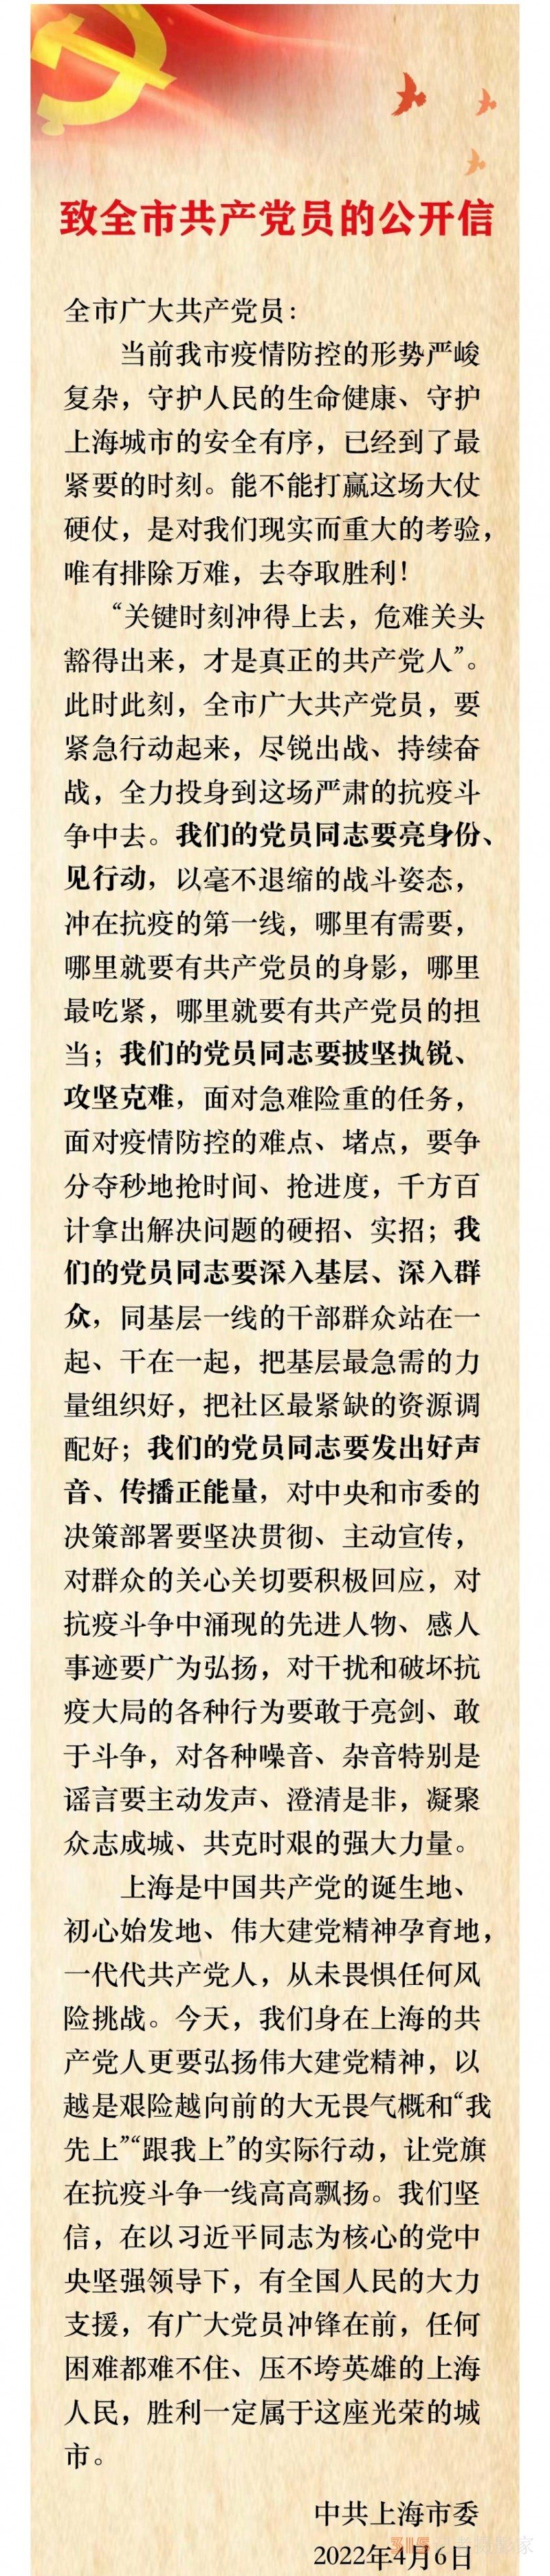 致全市共产党员的公开信
全市广大共产党员：
当前我市疫情防控的形势严峻
复杂，守护人民的生命健康、守护
上海城市的安全有序，已经到了最
紧要的时刻。能不能打赢这场大仗
硬仗，是对我们现实而重大的考验，
唯有排除万难，去夺取胜利！
“关键时刻冲得上去，危难关头
豁得出来，才是真正的共产党人”。
此时此刻，全市广大共产党员，要
紧急行动起来，尽锐出战、持续奋
战，全力投身到这场严肃的抗疫斗
争中去。我们的党员同志要亮身份、
见行动，以毫不退缩的战斗姿态，
冲在抗疫的第一线，哪里有需要，
哪里就要有共产党员的身影，哪里
最吃紧，哪里就要有共产党员的担
当；我们的党员同志要披坚执锐、
攻坚克难，面对急难险重的任务，
面对疫情防控的难点、堵点，要争
分夺秒地抢时间、抢进度，千方百
计拿出解决问题的硬招、实招；我
们的党员同志要深入基层、深入群
众，同基层一线的干部群众站在一
起、干在一起，把基层最急需的力
量组织好，把社区最紧缺的资源调
配好；我们的党员同志要发出好声
音、传播正能量，对中央和市委的
决策部署要坚决贯彻、主动宣传，
对群众的关心关切要积极回应，对
抗疫斗争中涌现的先进人物、感人
事迹要广为弘扬，对干扰和破坏抗
疫大局的各种行为要敢于亮剑、敢
于斗争，对各种噪音、杂音特别是
谣言要主动发声、澄清是非，凝聚
众志成城、共克时艰的强大力量。
上海是中国共产党的诞生地、
初心始发地、伟大建党精神孕育地，
一代代共产党人，从未畏惧任何风
险挑战。今天，我们身在上海的共
产党人更要弘扬伟大建党精神，以
越是艰险越向前的大无畏气概和“我
先上”“跟我上”的实际行动，让党旗
在抗疫斗争一线高高飘扬。我们坚
信，在以习近平同志为核心的党中
央坚强领导下，有全国人民的大力
支援，有广大党员冲锋在前，任何
困难都难不住、压不垮英雄的上海
人民，胜利一定属于这座光荣的城
市。
中共上海市委
2022年4月6日